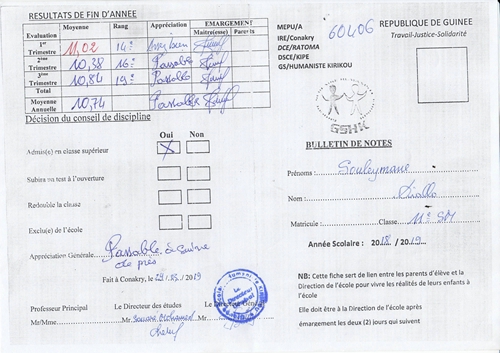 RESULTATS DE FIN D'ANNEE
Evaluation Moyenne Rang Appréciation EMARGEMENT
Maitre(esse) Parents
1er Trimestre 11,02 14e Assez bien
2ème Trimestre 10,38 16e Passable
3ème Trimestre 10,84 19e Passable
Total
Moyenne Annuelle 10,74 Passable
Décision du conseil de discipline
Oui Non
Admis(e) en classe supérieur X
Subira un test à l'ouverture
Redouble la classe
Exclu(e) de l'école
Appréciation Générale: Passable à suivre de près
Fait à Conakry, le 2019
Professeur Principal Le Directeur des études Le Directeur
Mr/Mme. Mr Mohamed Cherif
MEPU/A
IRE/Conakry
DCE/RATOMA
DSCE/KIPE
GS/HUMANISTE KIRIKOU
60406
REPUBLIQUE DE GUINEE
Travail-Justice-Solidarité
GSHK
BULLETIN DE NOTES
Prénoms : Souleymane
Nom : Diallo
Matricule : Classe 11e SM
Année Scolaire : 2018 / 2019
NB: Cette fiche sert de lien entre les parents d'élève et la
Direction de l'école pour vivre les réalités de leurs enfants à
l'école
Elle doit être à la Direction de l'école après
émargement les deux (2) jours qui suivent